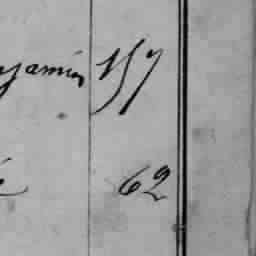 njamin 157
62